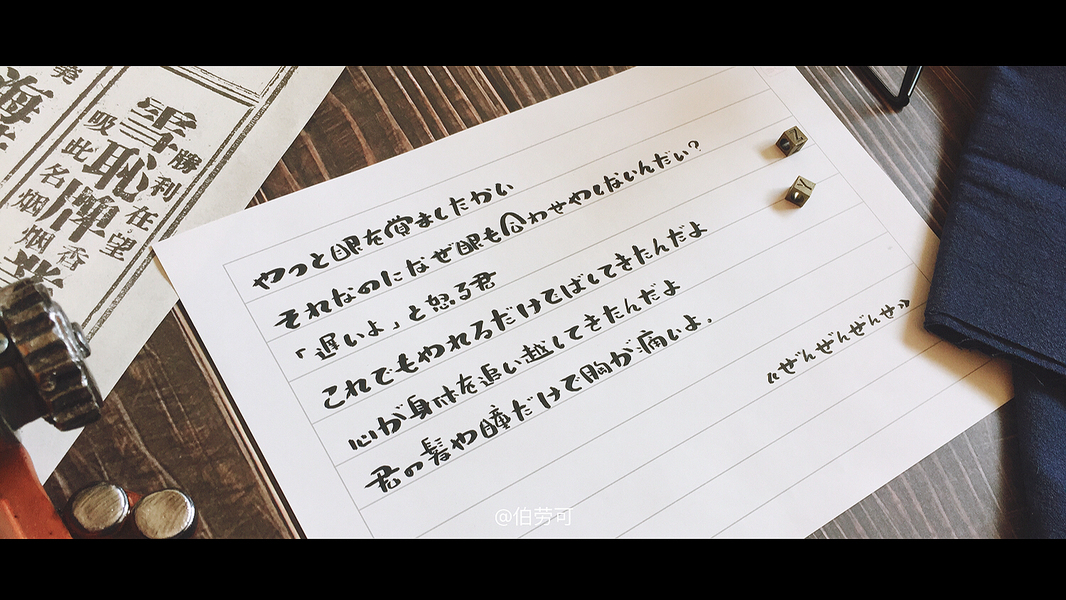 美
雪恥牌
勝利在望
吸此名烟烟香
やっと眼を覚ましたかい
それなのになぜ眼も合わせやしないんだい?
「遅いよ」と怒る君
これでもやれるだけとばしてきたんだよ
心が身体を追い越してきたんだよ
君の髪や瞳だけで胸が痛いよ。
《ぜんぜんぜんせ》
@伯劳可